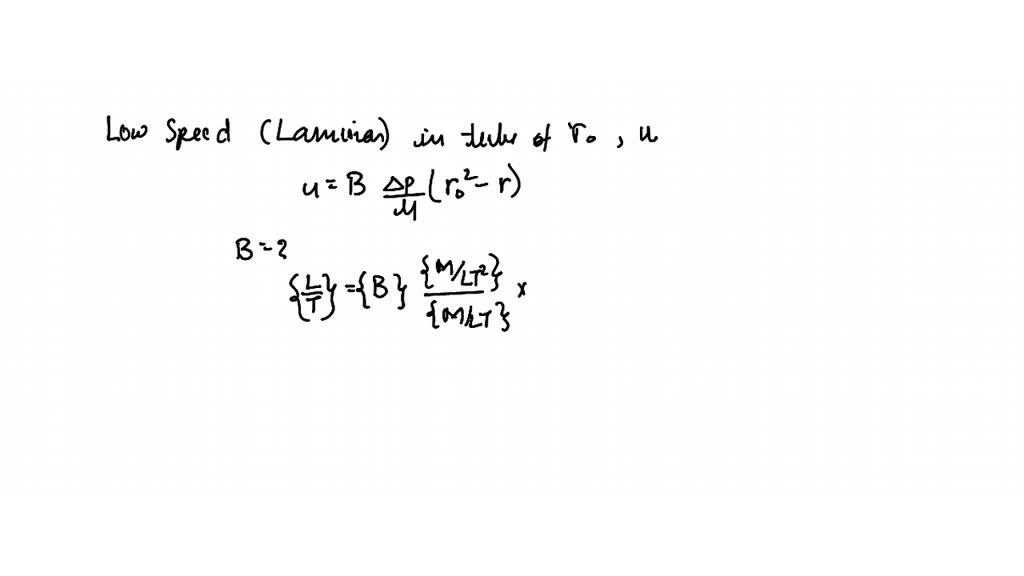 Low Speed (Laminar) in tube of r₀, u
u = B Δp/μ (r₀² - r)
B = ?
{L/T} = {B} {M/LT²}/{M/LT} ×